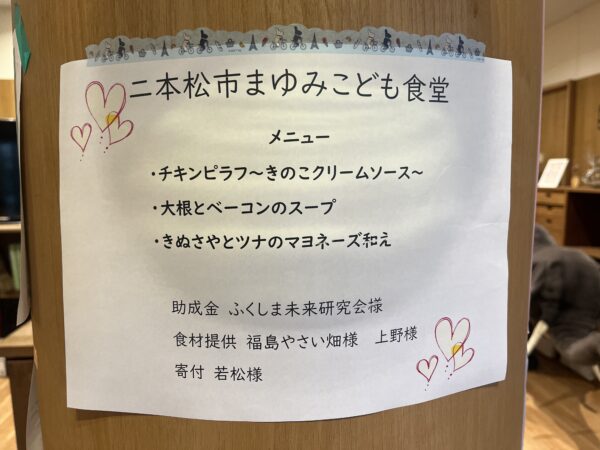 二本松市まゆみこども食堂
メニュー
・チキンピラフ〜きのこクリームソース〜
・大根とベーコンのスープ
・きぬさやとツナのマヨネーズ和え
助成金 ふくしま未来研究会様
食材提供 福島やさい畑様 上野様
寄付 若松様